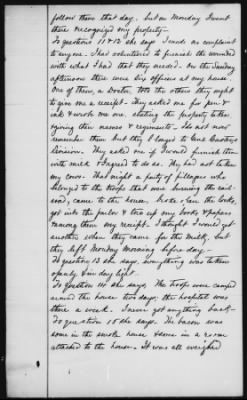 follow them that day. but on Monday I went
there recognizing my property.
To questions 11 & 12 she says I made no complaint
to anyone. I had volunteered to furnish the wounded
with what I had that they needed. On the Sunday
afternoon there were six officers at my house.
One of them, a Doctor, told the others they ought
to give me a receipt. They asked me for pen &
ink & wrote me one stating the property taken
signing their names & regiments. I do not now
remember them but they belonged to
division. They asked me if I would furnish them
with milk & I agreed to do so. They had not taken
my cows. That night a party of pillagers who
belonged to the troops that were burning the rail-
road, came to the house, broke open the locks,
got into the parlor & tore up my books & papers
& among them my receipt. I thought I would get
another when they came for the milk, but
they left Monday morning before day.
To question 13 she says, everything was taken
openly & in day light.
To question 14 she says, The troops were camped
around the house two days; the hospital was
there a week. I never got anything back.
To question 15 she says. The bacon was
some in the smoke house & some in a room
attached to the house. It was all weighed